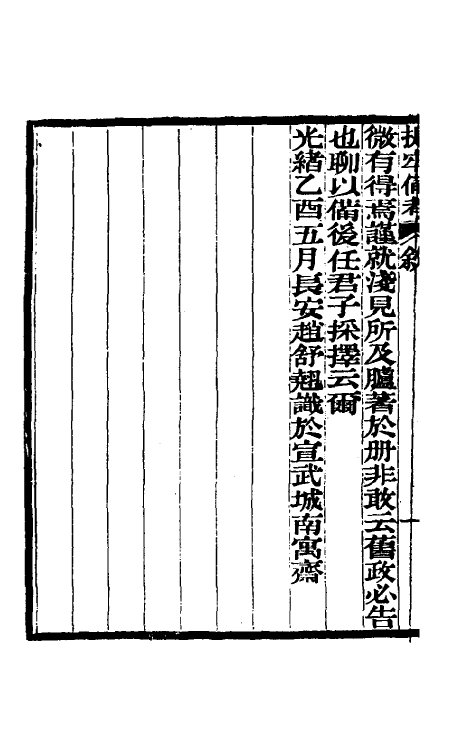 提牢備考 敘 一
微有得焉謹就淺見所及臚著於册非敢云舊政必告
也聊以備後任君子採擇云爾
光緒乙酉五月長安趙舒翹識於宣武城南寓齋